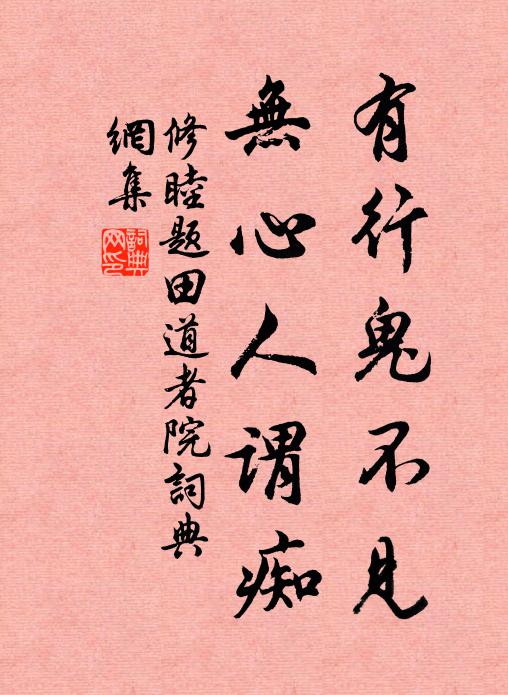 有行鬼不見
無心人謂痴
修睦題田道者院詞典
網集
詞典網印